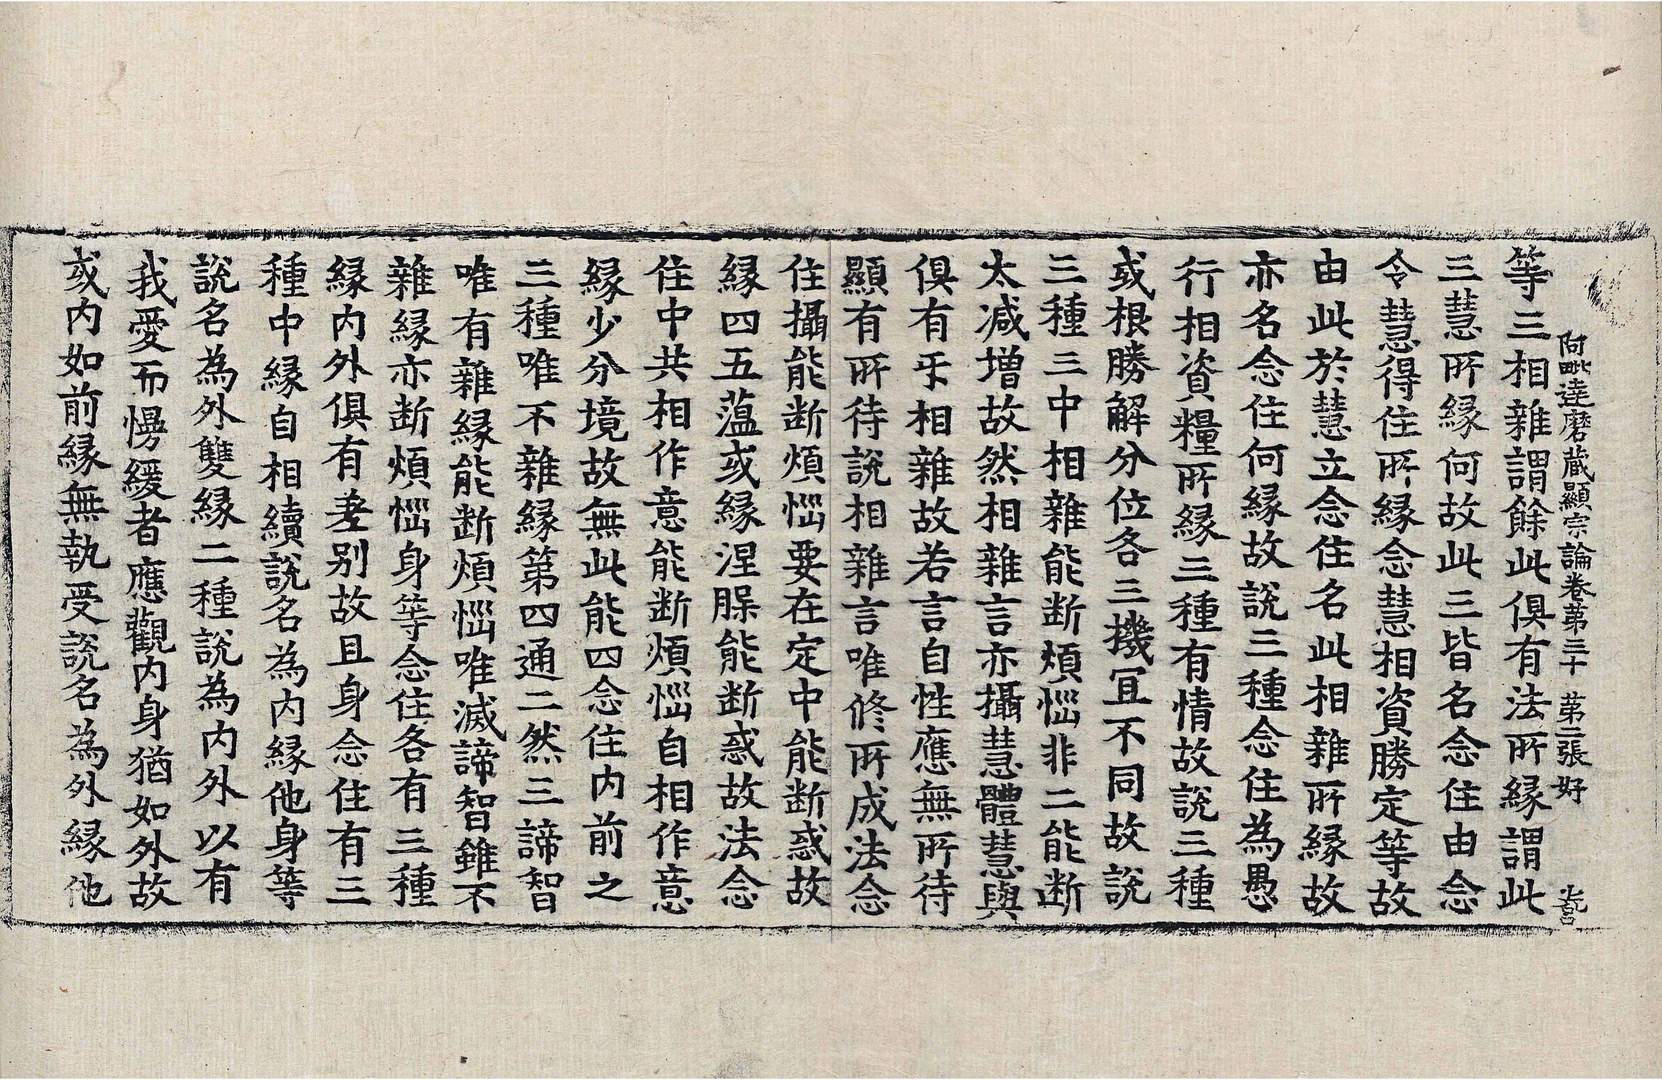 阿毗達磨藏顯宗論卷第三十 第二張 好
等三相雜謂餘此俱有法所縁謂此
三慧所縁何故此三皆名念住由念
令慧得住所縁念慧相資勝定等故
由此於慧立念住名此相雜所縁故
亦名念住何縁故說三種念住為愚
行相資糧所縁三種有情故說三種
或根勝解分位各三機冝不同故說
三種三中相雜能断煩惱非二能断
太減增故然相雜言亦攝慧體慧與
俱有乎相雜故若言自性應無所待
顯有所待說相雜言唯修所成法念
住攝能断煩惱要在定中能断惑故
縁四五薀或縁涅槃能断惑故法念
住中共相作意能断煩惱自相作意
縁少分境故無此能四念住内前之
三種唯不雜縁第四通二然三諦智
唯有雜縁能断煩惱唯滅諦智雖不
雜縁亦断煩惱身等念住各有三種
縁内外俱有差别故且身念住有三
種中縁自相續說名為内縁他身等
說名為外雙縁二種說為内外以有
我愛而慢緩者應觀内身猶如外故
或内如前縁無執受說名為外縁他